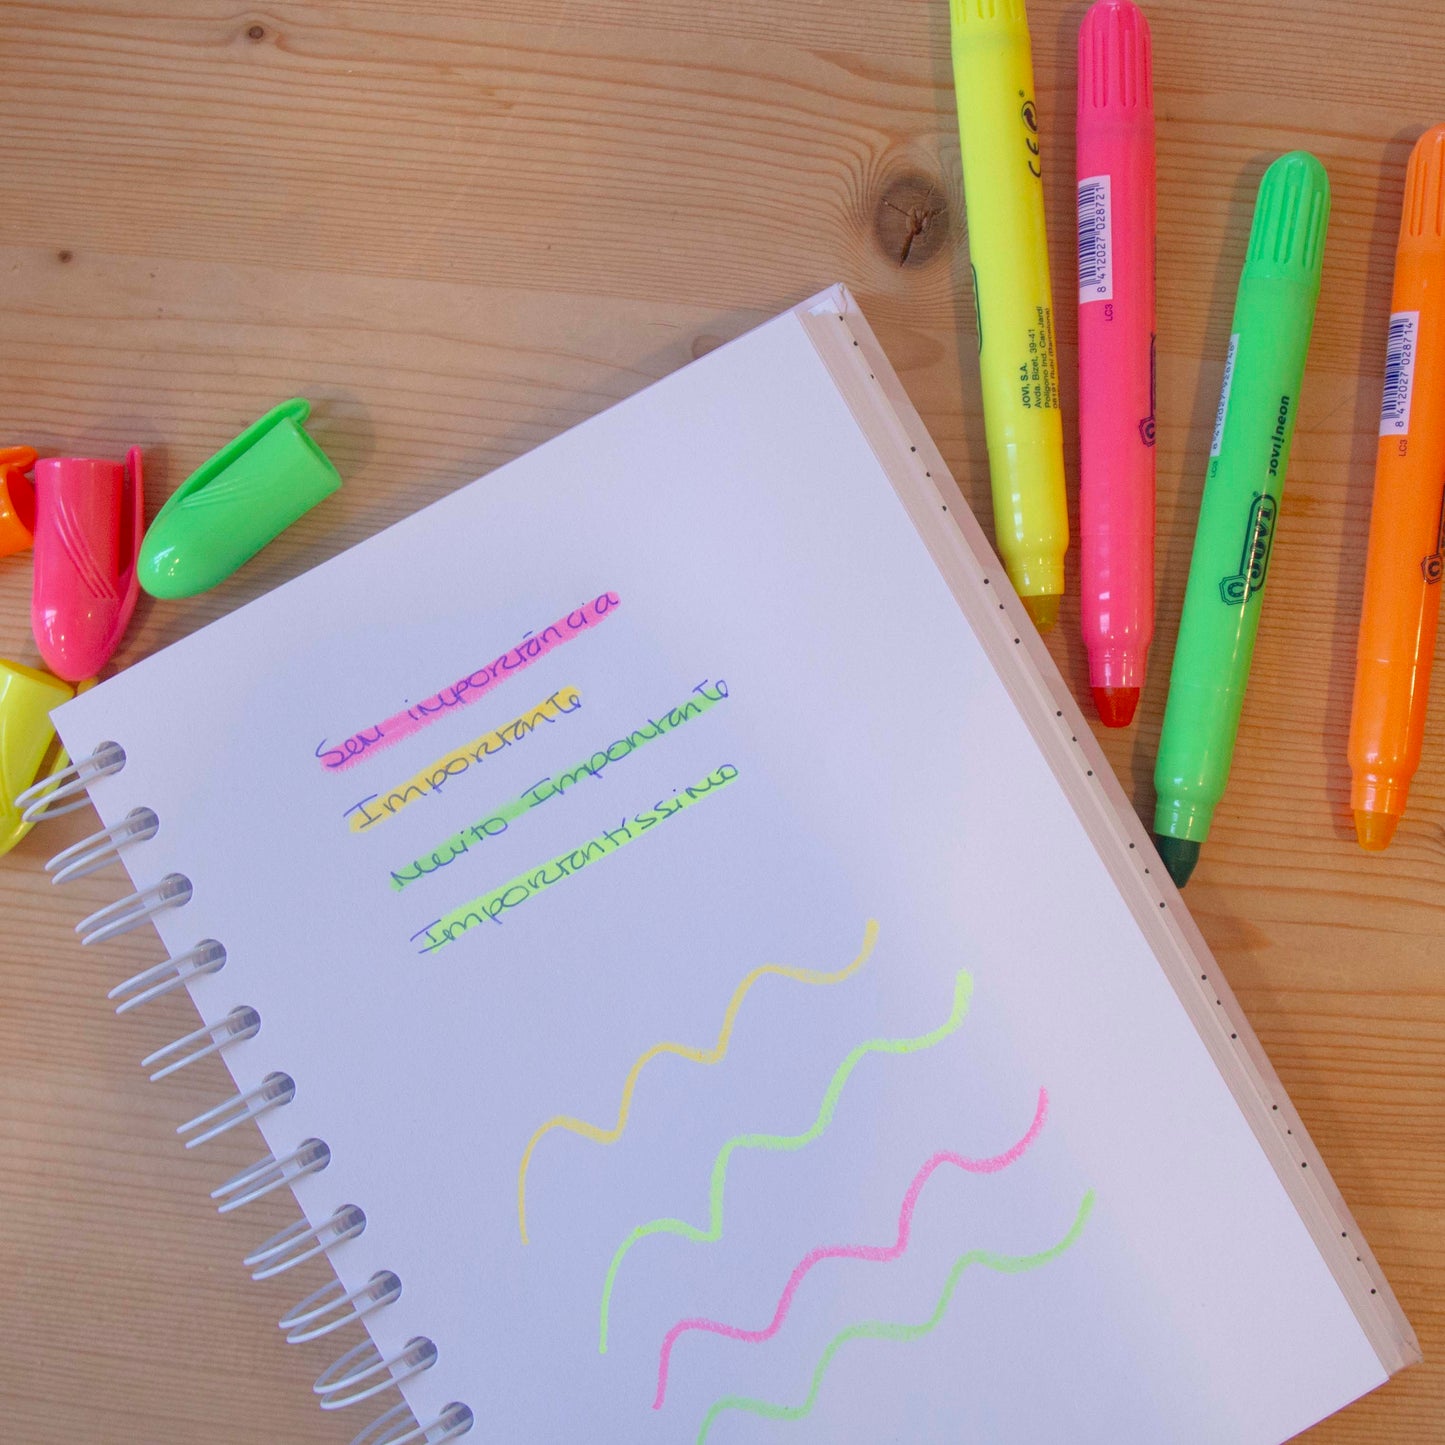 Sem importância
Importante
Muito Importante
Importantíssimo
CE
JOVI, S.A.
Avda. Bizet, 39-41
Polígono Ind. Can Jardí
08191 Rubí (Barcelona)
8 412027 028721
LC3
JOVI
jovi!neon
LC3
8 412027 028714
LC3